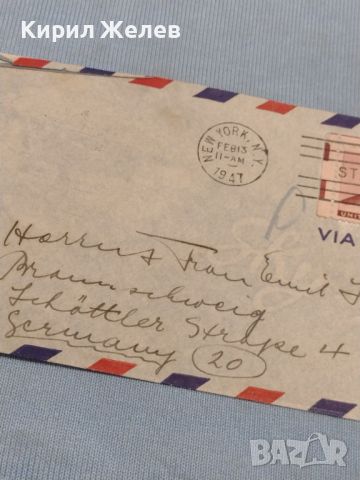 Кирил Желев
NEW YORK, N.Y.
FEB 13
11-AM
1947
ST
UNIT
VIA
Frau Emil
Braunschweig
Schöttler Straße 4
Germany (20)
BAZAR
bg